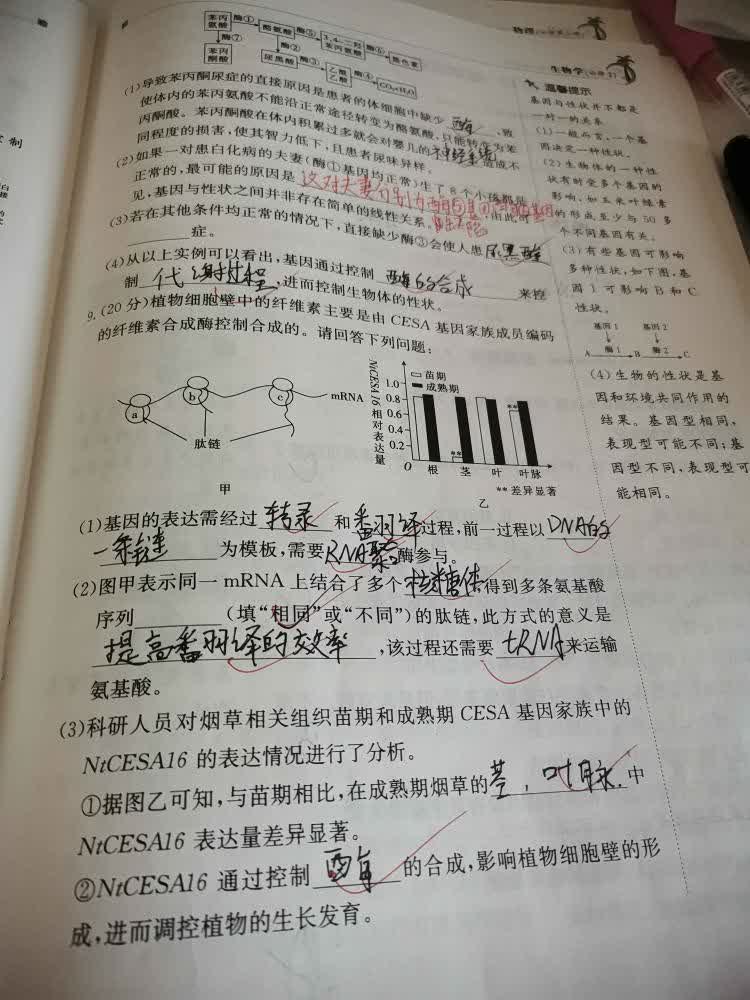 物理(必修第二册)
生物学(必修2)
苯丙氨酸 酶① 酪氨酸 酶⑤ 3,4-二羟苯丙氨酸 酶⑥ 黑色素
酶⑦ 酶②
苯丙酮酸 尿黑酸 酶③ 乙酰乙酸 酶④ CO₂+H₂O
(1)导致苯丙酮尿症的直接原因是患者的体细胞中缺少 酶①,致
使体内的苯丙氨酸不能沿正常途径转变为酪氨酸,只能转变为苯
丙酮酸。苯丙酮酸在体内积累过多就会对婴儿的神经系统造成不
同程度的损害,使其智力低下,且患者尿味异样。
(2)如果一对患白化病的夫妻(酶①基因均正常)生了8个小孩都是
正常的,最可能的原因是 这对夫妻分别为酶⑤
,由此可
见,基因与性状之间并非存在简单的线性关系。
(3)若在其他条件均正常的情况下,直接缺少酶③会使人患 尿黑酸
症。
(4)从以上实例可以看出,基因通过控制 酶的合成 来控
制 代谢过程,进而控制生物体的性状。
9.(20分)植物细胞壁中的纤维素主要是由CESA基因家族成员编码
的纤维素合成酶控制合成的。请回答下列问题:
a b c mRNA
肽链
甲
NtCESA16相对表达量
苗期
成熟期
1.0
0.8
0.6
0.4
0.2
O 根 茎 叶 叶脉
** **
** 差异显著
乙
(1)基因的表达需经过 转录 和 翻译 过程,前一过程以 DNA的
一条链 为模板,需要 RNA聚合酶参与。
(2)图甲表示同一mRNA上结合了多个 核糖体,得到多条氨基酸
序列 (填“相同”或“不同”)的肽链,此方式的意义是
提高翻译的效率,该过程还需要 tRNA 来运输
氨基酸。
(3)科研人员对烟草相关组织苗期和成熟期CESA基因家族中的
NtCESA16的表达情况进行了分析。
①据图乙可知,与苗期相比,在成熟期烟草的 茎,叶脉 中
NtCESA16表达量差异显著。
②NtCESA16通过控制 酶 的合成,影响植物细胞壁的形
成,进而调控植物的生长发育。
温馨提示
基因与性状并不都是
一对一的关系
(1)一般而言,一个基
因决定一种性状。
(2)生物体的一种性
状有时受多个基因的
影响,如玉米叶绿素
的形成至少与50多
个不同基因有关。
(3)有些基因可影响
多种性状,如下图,基
因1可影响B和C
性状。
基因1 基因2
A 酶1 B 酶2 C
(4)生物的性状是基
因和环境共同作用的
结果。基因型相同,
表现型可能不同;基
因型不同,表现型可
能相同。